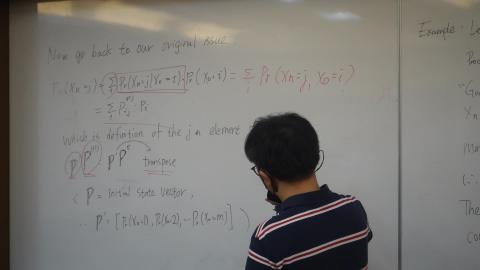 Now go back to our original issue
Pr(Xn=j) = Σ Pr(Xn=j|X0=i) · Pr(X0=i) = Σi Pr(Xn=j, X0=i)
= Σi Pij(n) · Pi
which is definition of the j th element
P P(n) P · Pn
transpose
P = initial state vector,
∴ P' = [Pr(X0=1), Pr(X0=2), -- Pr(X0=m)] )
Example: Le
"Gu
Xn
The
con